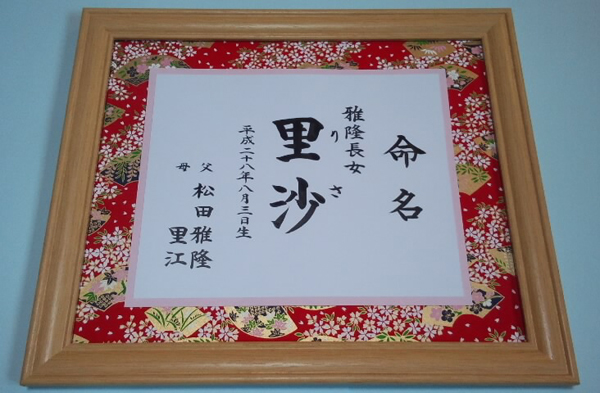 命名
雅隆長女
里沙
りさ
平成二十八年八月三日生
父 松田雅隆
母 里江